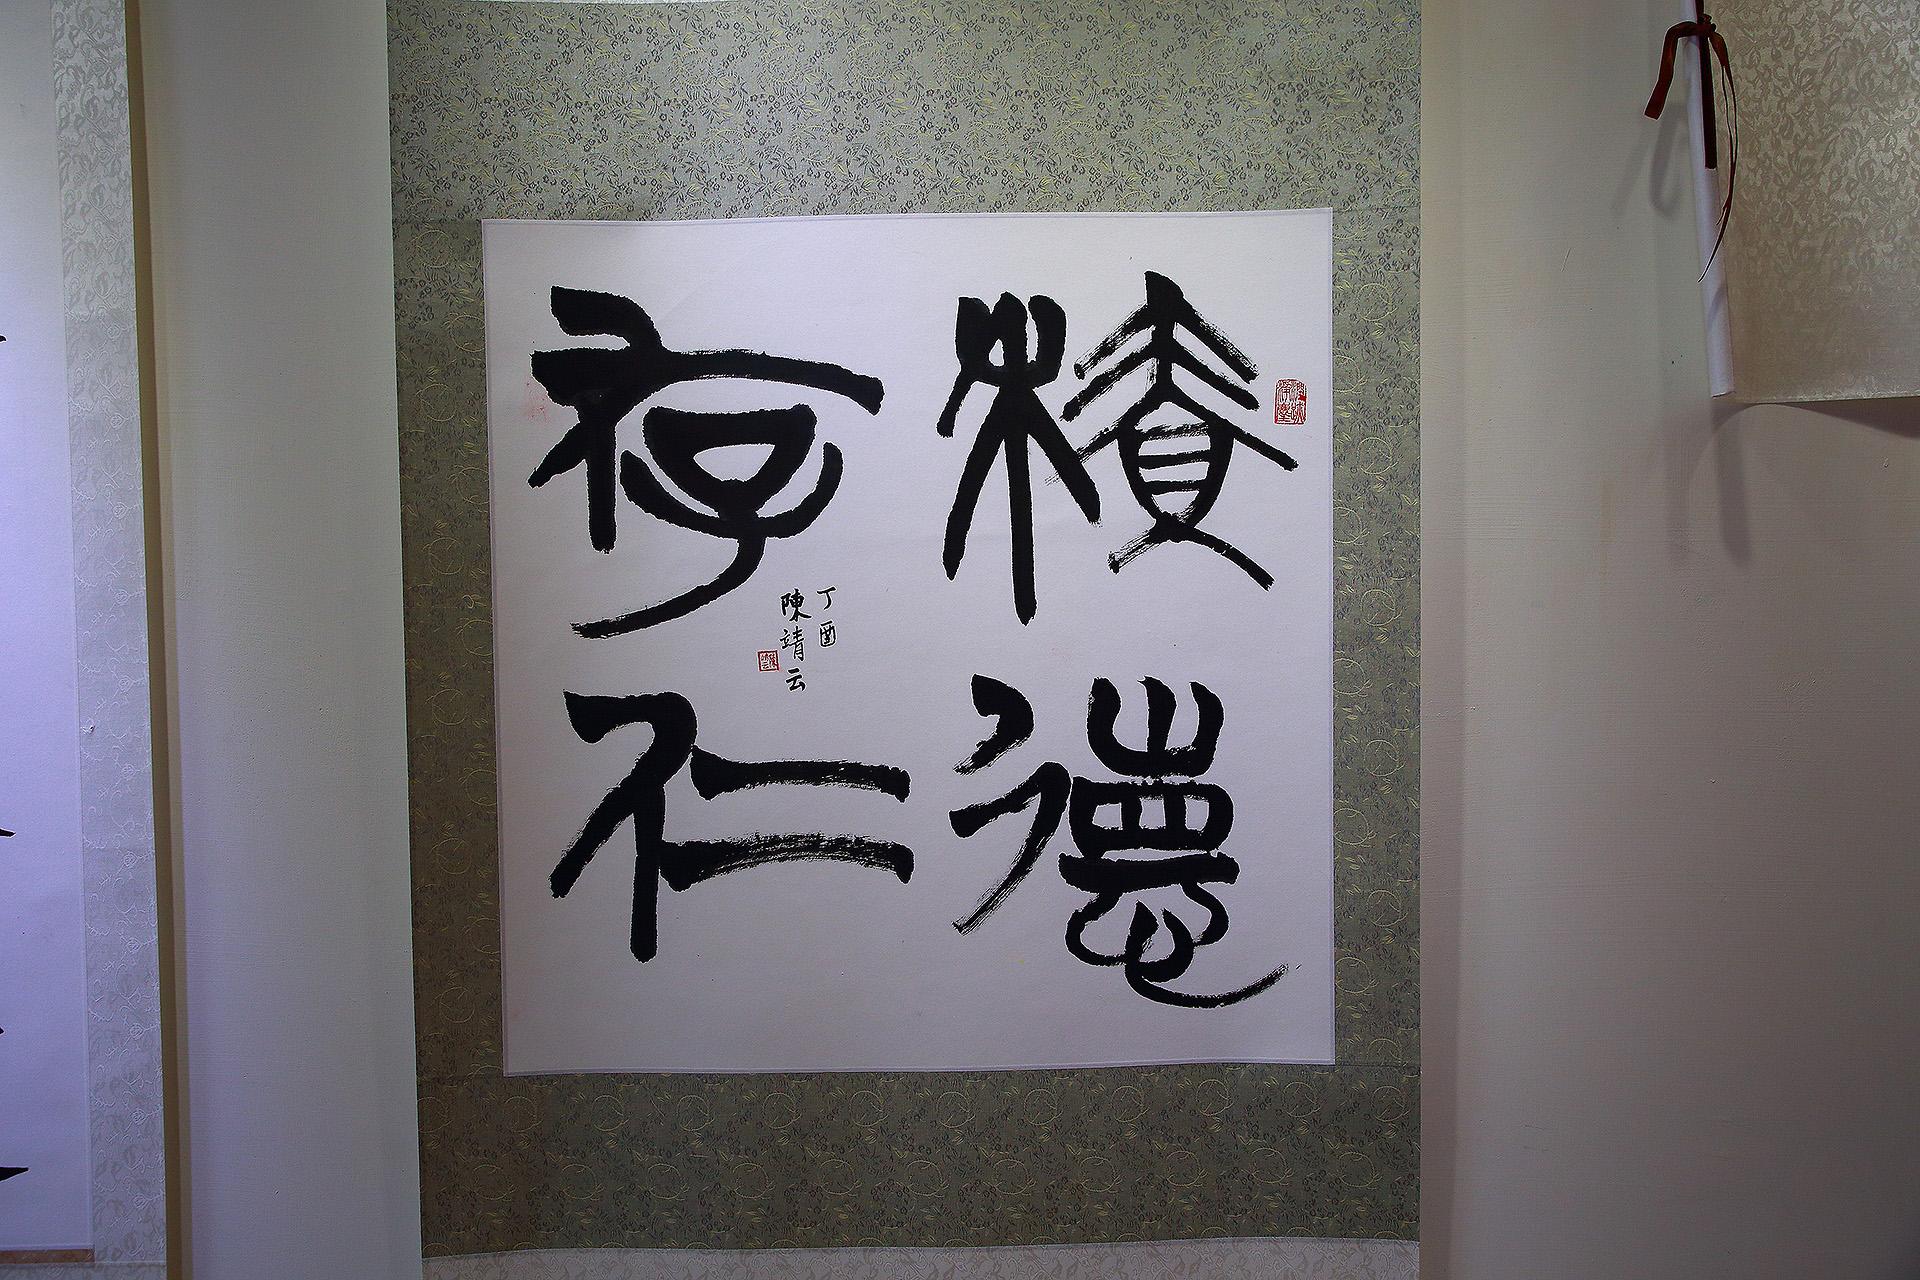 積德
存仁
丁酉
陳靖云